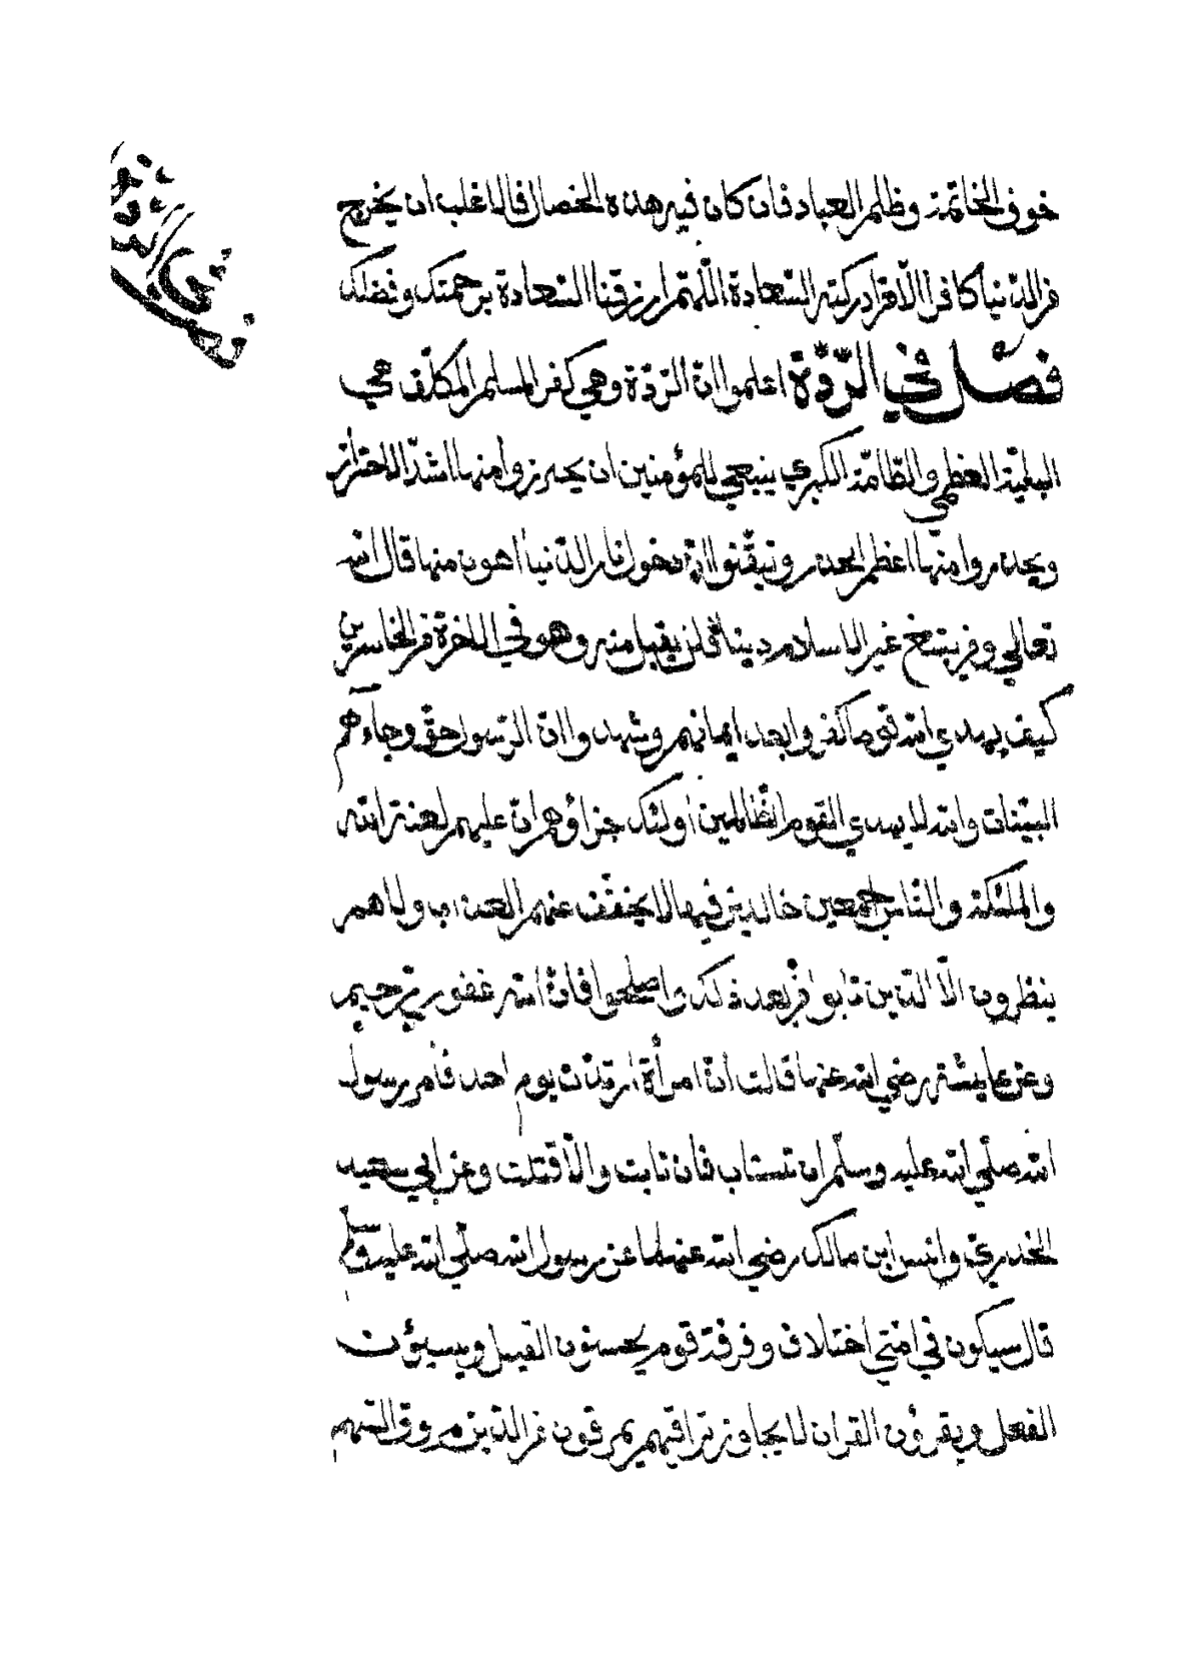 فصل في الردة
خوف الخاتمة وظلم العباد فان كان فيه هذه الخصال فالاغلب ان يخرج
من الدنيا كافرا الا من ادركته السعادة اللهم ارزقنا السعادة برحمتك وفضلك
فصل في الرّدّة اعلموا انّ الرّدّة وهي كفر المسلم المكلّف هي
البليّة العظمي والطّامّة الكبري ينبغي للمؤمنين ان يحترزوا منها اشدّ الاحتراز
ويحذروا منها اعظم الحذر وتيقّنوا انّ دخول نار الدّنيا اهون منها قال الله
تعالي ومن يبتغ غير الاسلام دينا فلن يقبل منه وهو في الاخرة من الخاسرين
كيف يهدي الله قوما كفروا بعد ايمانهم وشهدوا انّ الرّسول حقّ وجاءهم
البيّنات والله لا يهدي القوم الظّالمين اولئك جزاؤهم انّ عليهم لعنة الله
والملئكة والنّاس اجمعين خالدين فيها لا يخفّف عنهم العذاب ولا هم
ينظرون الّا الّذين تابوا من بعد ذلك واصلحوا فانّ الله غفور رّحيم
وعن عايشة رضي الله عنها قالت انّ امرأة ارتدّت يوم احد فأمر رسول
الله صلّي الله عليه وسلّم ان تستتاب فان تابت والّا قتلت وعن ابي سعيد
الخدريّ وانس ابن مالك رضي الله عنهما عن رسول الله صلّي الله عليه وسلّم
قال سيكون في امّتي اختلاف وفرقة قوم يحسنون القيل ويسيؤن
الفعل ويقرؤن القران لا يجاوز تراقيهم يمرقون من الدّين مروق السّهم